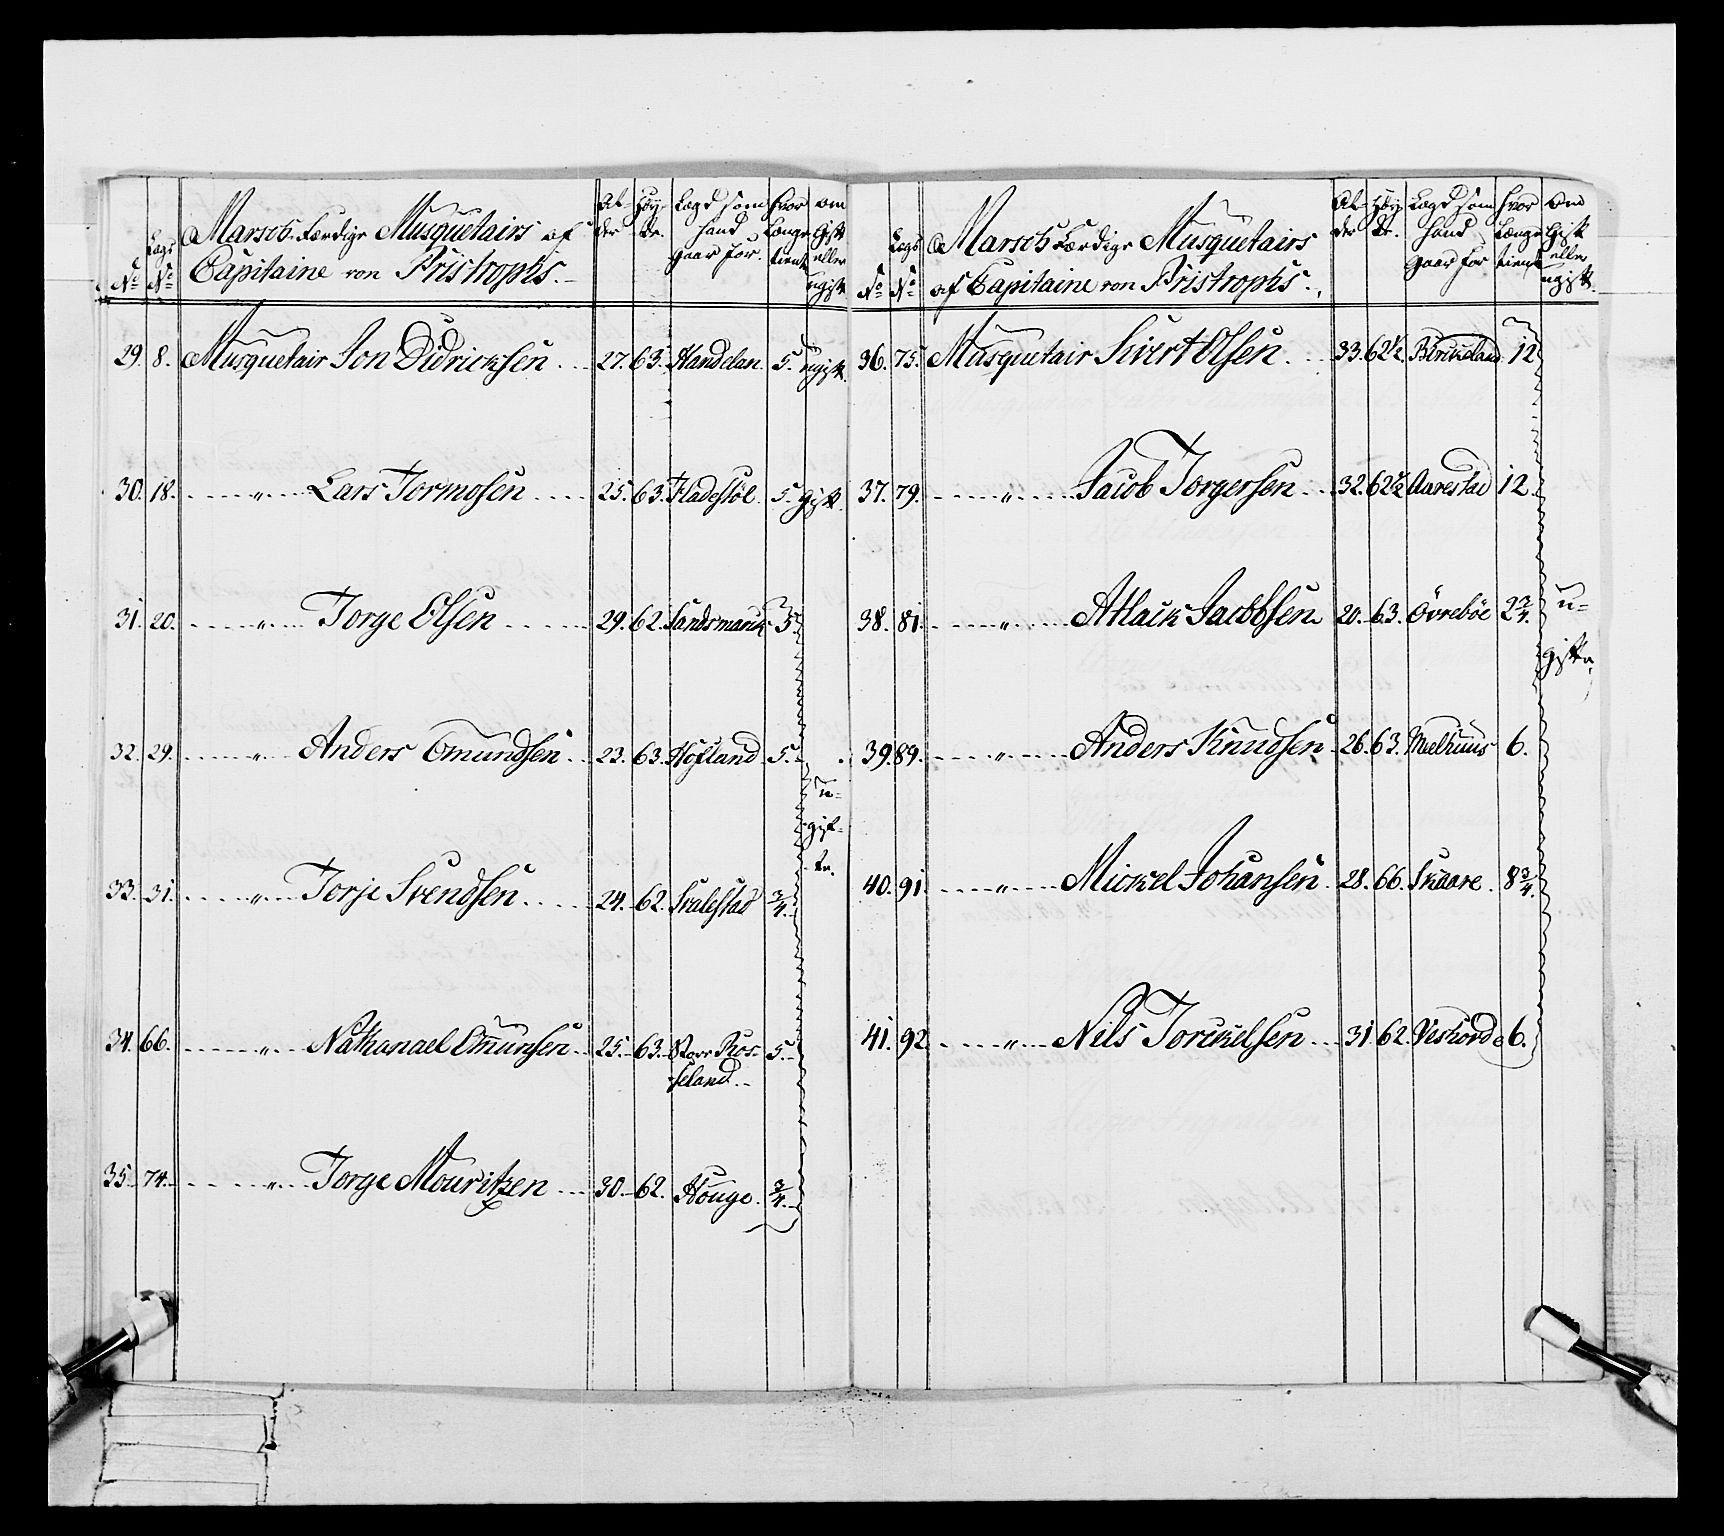 No Lægs No Marsch Færdige Musquetairs af Capitaine von Fristrophs. Al- der Høy- de. Lægd som hand gaar for. Hvor Længe tient om Gift eller ugift
29. 8. Musquetair Jon Didricksen 27. 63. Handelan. 5. ugift.
30. 18. " Lars Tormosen 25. 63. Fladestøl 5. gift.
31. 20. " Torge Olsen 29. 62. Sandsmarck 5
32. 29. " Anders Omundsen 23. 63. Høyland 5.
u-
gif-
te.
33. 31. " Torje Svendsen 24. 62. Svalestad 3/4.
34. 66. " Nathanael Omunsen 25. 63. Store Ros- 5.
seland.
35. 74. " Torge Mouritzen 30. 62. Houge. 3/4.
No Lægs No Marsch Færdige Musquetairs af Capitaine von Fristrophs. Al- der Høy- de. Lægd som hand gaar for Hvor Længe tient om Gift eller ugift.
36. 75. Musquetair Sivert Olsen 33. 62 1/2. Birckeland 12
37. 79. " Jacob Torgersen 32. 62 1/2 Aarestad 12
38. 81. " Atlack Jacobsen 20. 63. Øvrebøe 2 3/4. u-
gifte
39. 89. " Anders Knudsen 26. 63. Meelhuus 6.
40. 91. " Mickel Johansen 28. 66. Skaare. 8 3/4.
41. 92 " Nils Torckelsen 31 62. Veshovd 6.